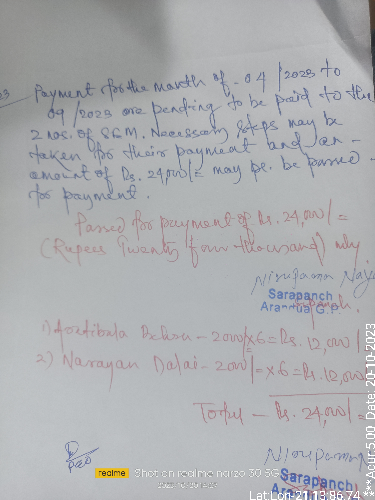 Payment for the month of - 04/2023 to
09/2023 are pending to be paid to the
2 nos. of SEM. Necessary steps may be
taken for their payment and an
amount of Rs. 24,000/= may pe. be passed -
for payment.
Passed for payment of Rs. 24,000/=
(Rupees Twenty four thousand) only.
Nirupama
Sarapanch
Arantua G.P.
1) - 2000/×6 = Rs. 12,000/
2) Narayan Dalai - 2000/= ×6 = Rs. 12,000
Total - Rs. 24,000/=
PEO
Nirupama
Sarapanch
realme Shot on realme narzo 30 5G
Lat:Lon-21.13,86.74 *** Acur:5.00 Date: 20-10-2023